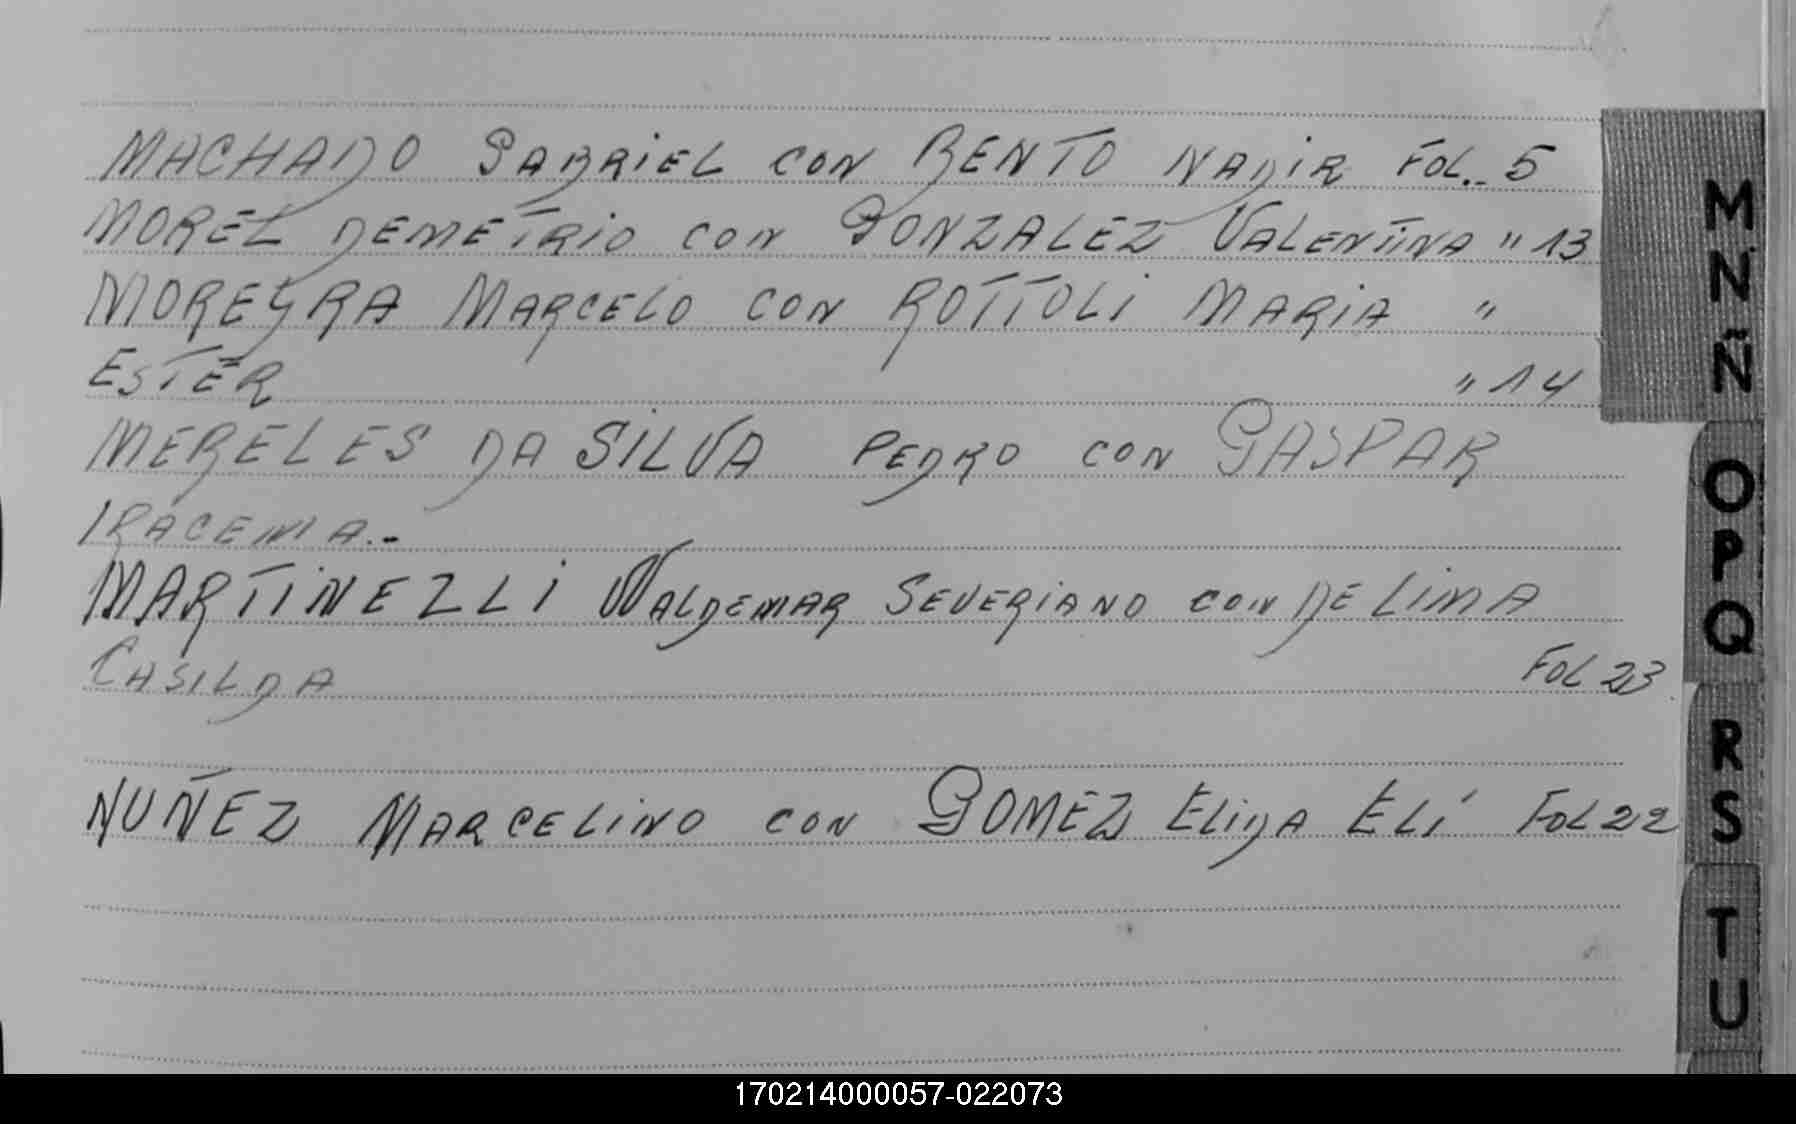 MACHADO GABRIEL CON BENTO NADIR FOL.. 5
MOREL DEMETRIO CON GONZALEZ VALENTINA " 13
MOREYRA MARCELO CON ROTTOLI MARIA "
ESTER " 14
MERELES DA SILVA PEDRO CON GASPAR
IRACEMA.-
MARTINEZLLI WALDEMAR SEVERIANO CON DE LIMA
CASILDA FOL 23
NUÑEZ MARCELINO CON GOMEZ ELIDA ELÍ FOL 22
M
N
Ñ
O
P
Q
R
S
T
U
170214000057-022073